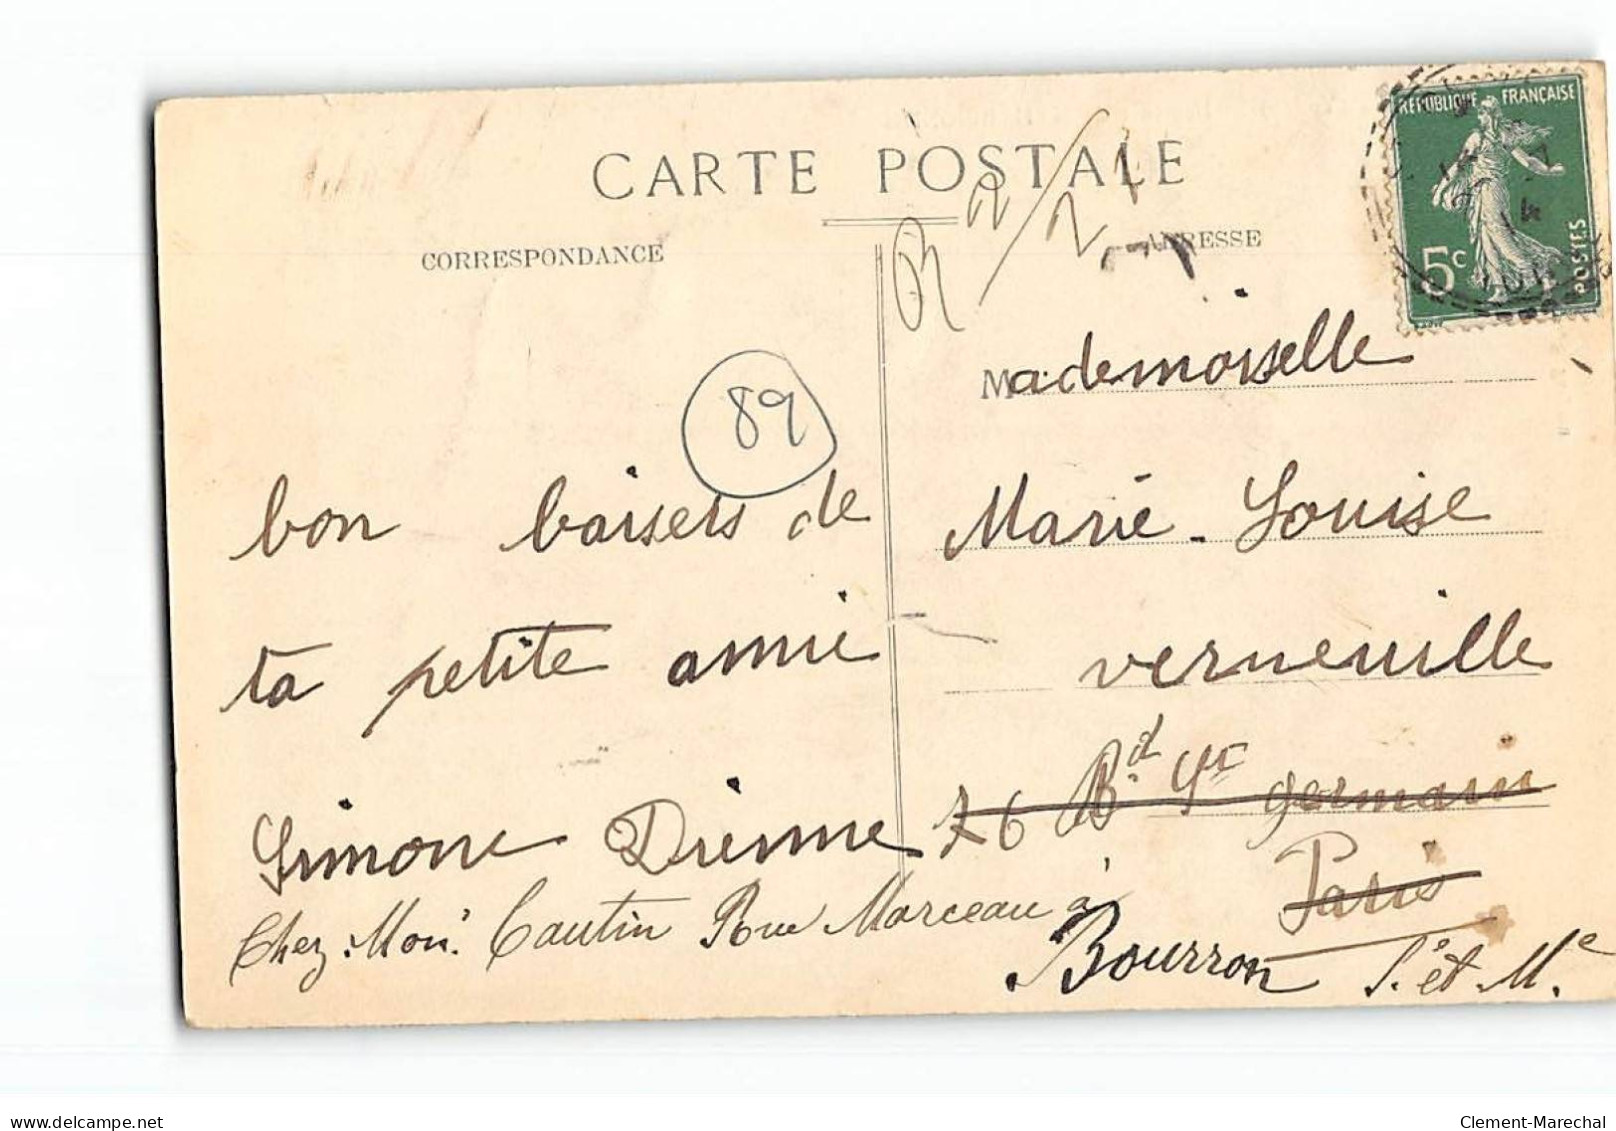 CARTE POSTALE
CORRESPONDANCE
ADRESSE
RÉPUBLIQUE FRANÇAISE
5c
POSTES
22/21
89
Mademoiselle
bon baisers de
Marie-Louise
ta petite amie
verneuille
Simone Dienne
76 Bd St germain
Paris
Chez Mon. Cautin Rue Marceau à
Bourron S. et Me.
delcampe.net
Clement-Marechal